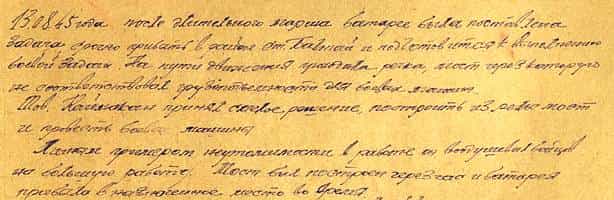 13.08.45 года после длительного марша батарее была поставлена
задача срочно прибыть в район ст. и подготовиться к выполнению
боевой задачи. На пути движения протекала река, мост через которую
не соответствовал грузоподъемности для боевых машин.
Тов. Каймакан принял смелое решение, построить из мост
и провести боевые машины
Личным примером неутомимости в работе он воодушевил бойцов
на большую работу. Мост был построен через час и батарея
прибыла в назначенное место во время.